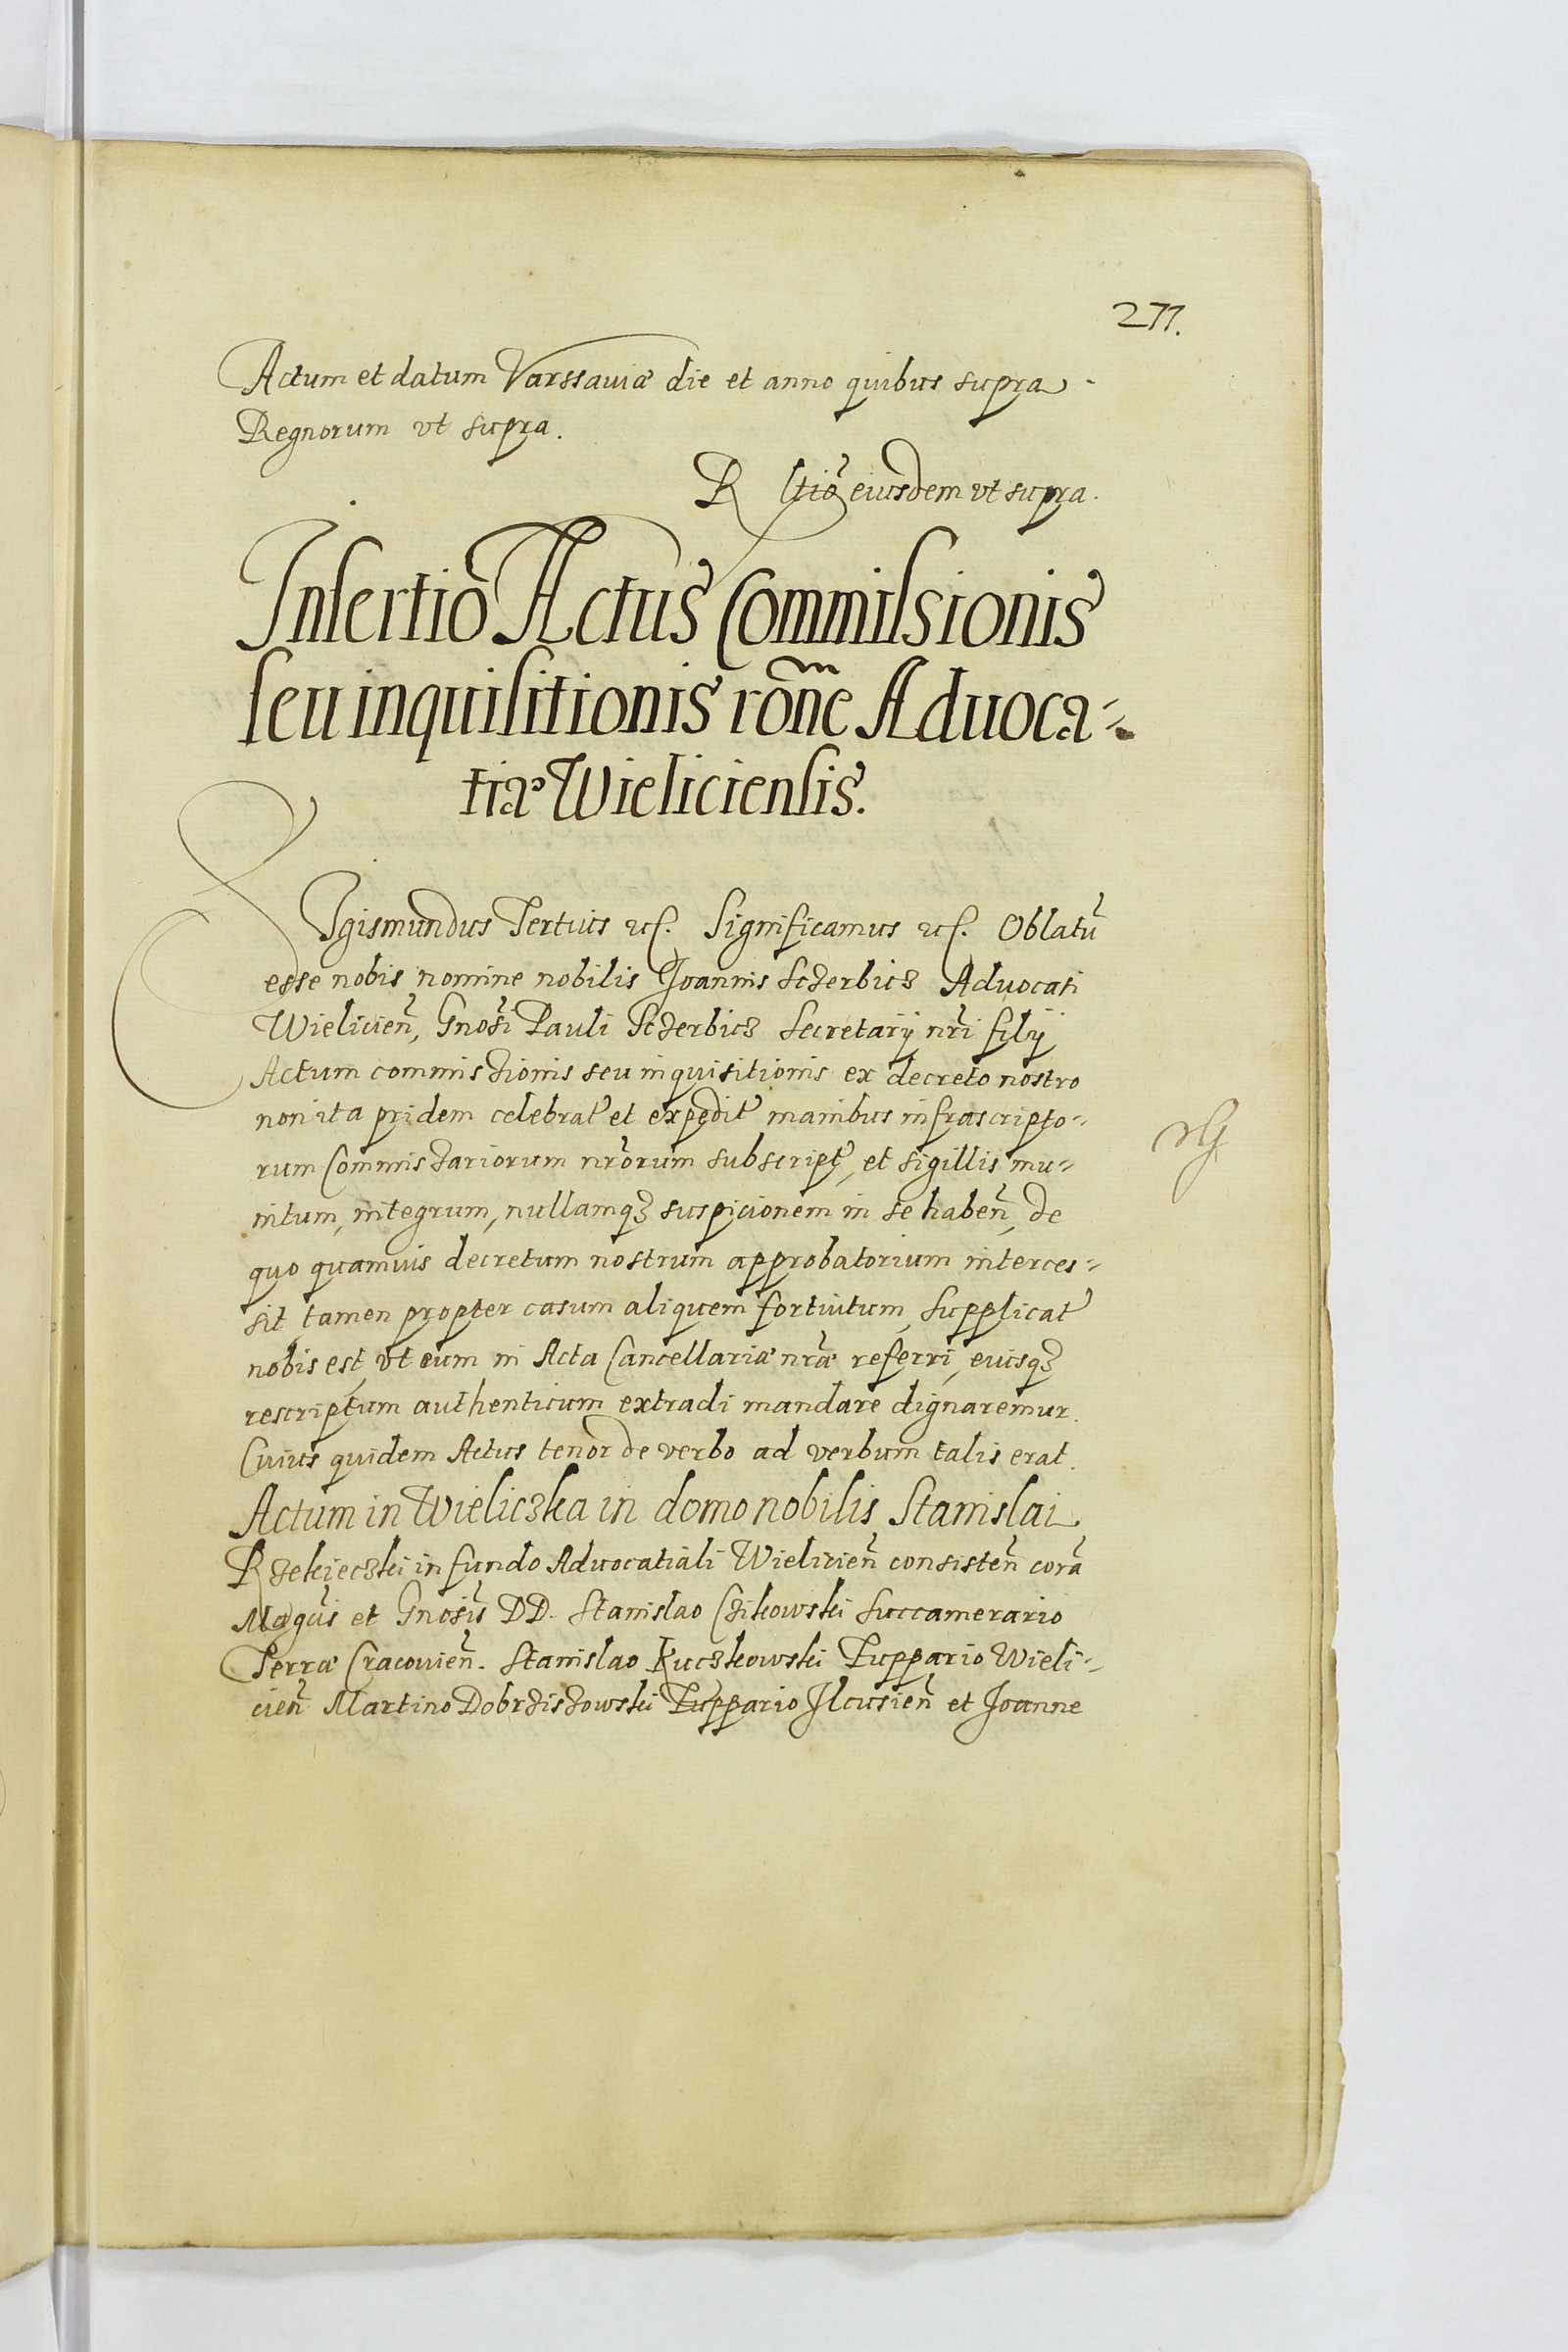 271.
Actum et datum Varssauiæ die et anno quibus supra
Regnorum vt supra.
R eiusdem vt supra.
Insertio Actus Commissionis
seu inquisitionis rõne Aduoca=
tiæ Wieliciensis.
Sigismundus Tertius etc. Significamus etc. Oblatũ
esse nobis nomine nobilis Joannis Sczerbicz Aduocati
Wielicieñ, Gnosi Pauli Sczerbicz Secretarij nri filij
Actum commissionis seu inquisitionis ex decreto nostro
non ita pridem celebrat et expedit manibus infrascripto=
rum Commissariorum nrorum subscript, et sigillis mu=
nitum, integrum, nullamq3 suspicionem in se habeñ, de
quo quamuis decretum nostrum approbatorium interces=
sit, tamen propter casum aliquem fortuitum, supplicat
nobis est, vt eum in Acta Cancellariæ nræ referri, eiusq3
rescriptum authenticum extradi mandare dignaremur.
Cuius quidem Actus tenor de verbo ad verbum talis erat.
Actum in Wieliczka in domo nobilis Stanislai
Rzekieczki in fundo Aduocatiali Wielicieñ consisteñ corã
Magcis et Gnosis DD. Stanislao Czikowski Succamerario
Terræ Cracouieñ. Stanislao Kuczkowski Zuppario Wieli=
cieñ Martino Dobrziszowski Zuppario Ilcusieñ et Joanne